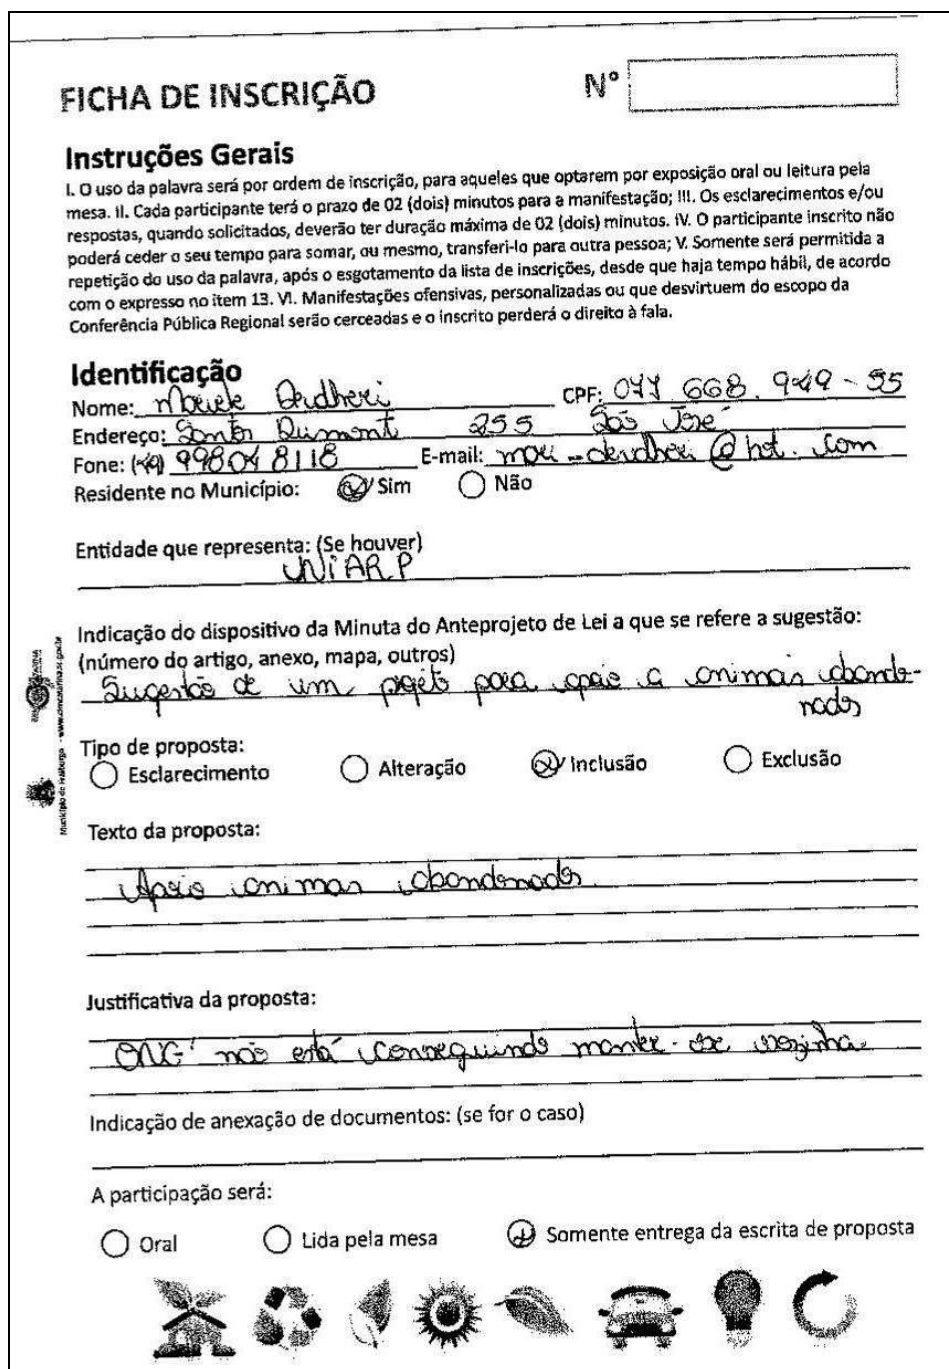 FICHA DE INSCRIÇÃO
Nº
Instruções Gerais
I. O uso da palavra será por ordem de inscrição, para aqueles que optarem por exposição oral ou leitura pela
mesa. II. Cada participante terá o prazo de 02 (dois) minutos para a manifestação; III. Os esclarecimentos e/ou
respostas, quando solicitados, deverão ter duração máxima de 02 (dois) minutos. IV. O participante inscrito não
poderá ceder o seu tempo para somar, ou mesmo, transferi-lo para outra pessoa; V. Somente será permitida a
repetição do uso da palavra, após o esgotamento da lista de inscrições, desde que haja tempo hábil, de acordo
com o expresso no item 13. VI. Manifestações ofensivas, personalizadas ou que desvirtuem do escopo da
Conferência Pública Regional serão cerceadas e o inscrito perderá o direito à fala.
Identificação
Nome: CPF: 668
Endereço: Santos Dumont 255 São José
Fone: (49) 99804 8118 E-mail:
Residente no Município: Sim Não
Entidade que representa: (Se houver)
UNIARP
Indicação do dispositivo da Minuta do Anteprojeto de Lei a que se refere a sugestão:
(número do artigo, anexo, mapa, outros)
Sugestão de um projeto para apoio a animais abando-
nados
Tipo de proposta:
Esclarecimento Alteração Inclusão Exclusão
Texto da proposta:
Apoio animais abandonados
Justificativa da proposta:
ONG não está conseguindo manter-se sozinha
Indicação de anexação de documentos: (se for o caso)
A participação será:
Oral Lida pela mesa Somente entrega da escrita de proposta
Município de Fraiburgo